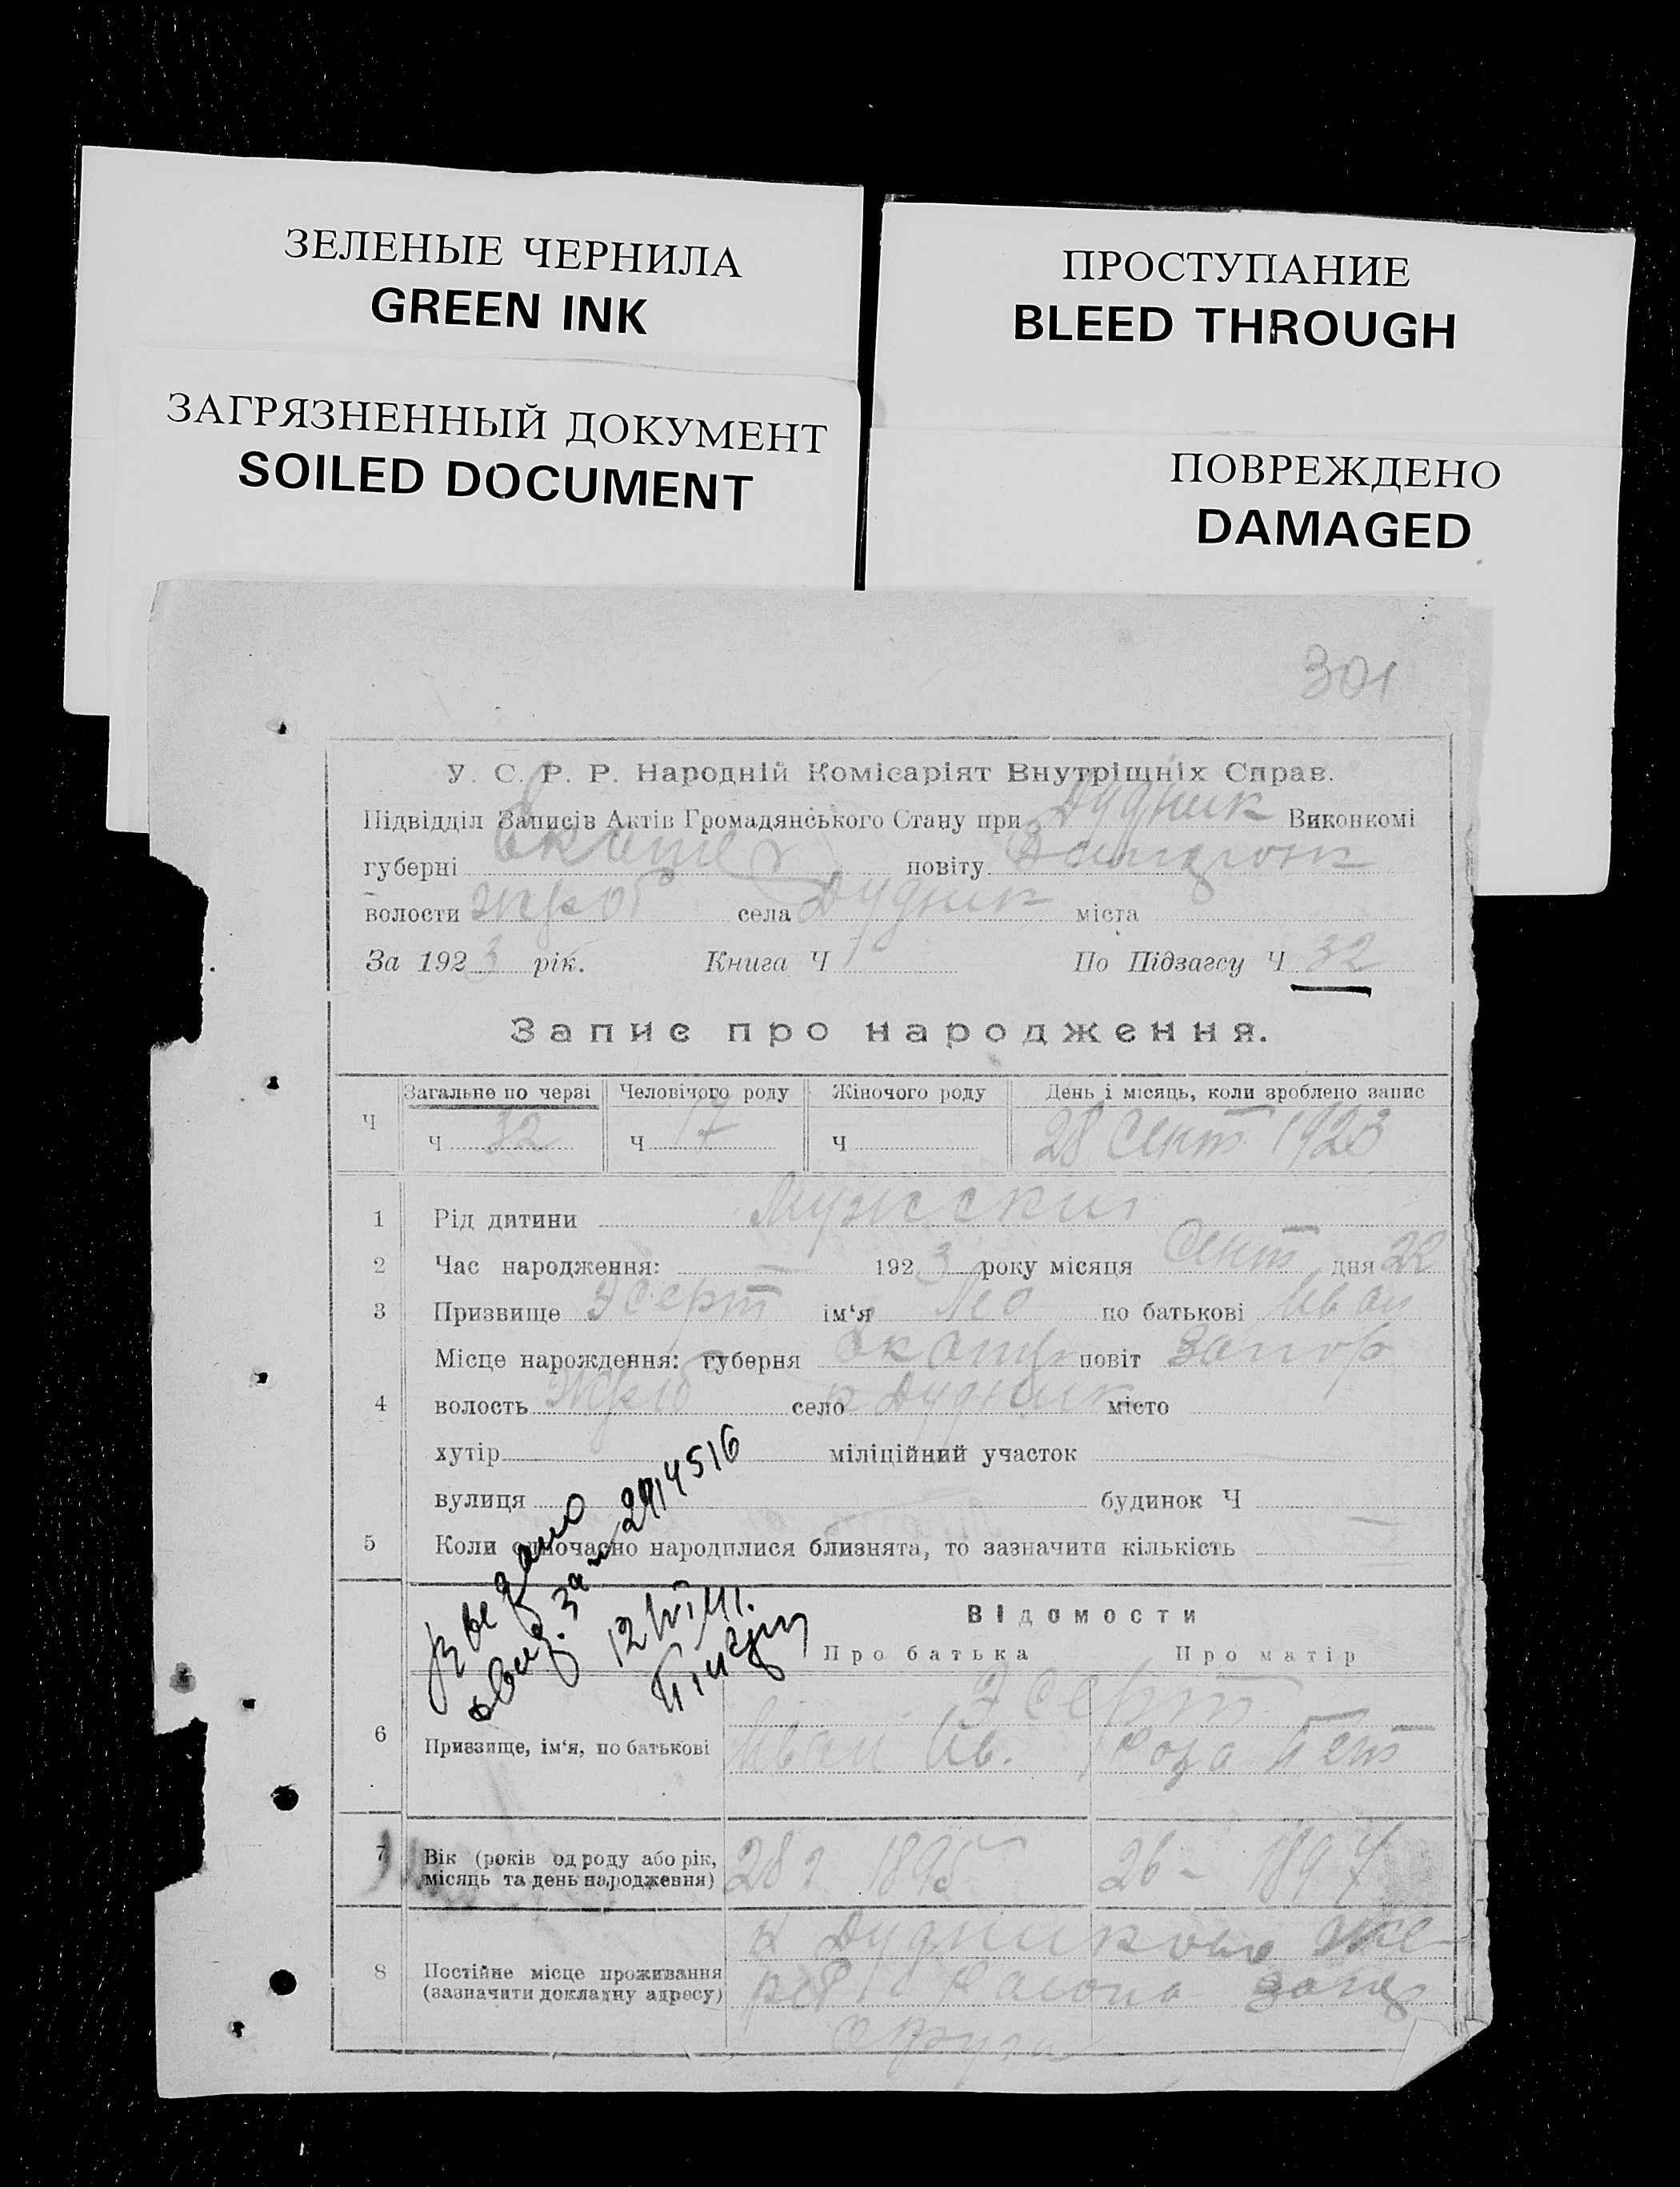 ЗЕЛЕНЫЕ ЧЕРНИЛА
GREEN INK
ЗАГРЯЗНЕННЫЙ ДОКУМЕНТ
SOILED DOCUMENT
ПРОСТУПАНИЕ
BLEED THROUGH
ПОВРЕЖДЕНО
DAMAGED
301
У. С. Р. Р. Народній Комісаріят Внутрішніх Справ.
Підвідділ Записів Актів Громадянського Стану при Дудник Виконкомі
губерні повіту
волости села Дудник міста
За 1923 рік. Книга Ч 1 По Підзагсу Ч 32
Запис про народження.
Ч Загальне по черзі Человічого роду Жіночого роду День і місяць, коли зроблено запис
Ч 32 Ч 17 Ч 28 Сент 1923
1 Рід дитини Мужский
2 Час народження: — 1923 року місяця Сент дня 22
3 Призвище Эсерт ім'я Лео по батькові Иван
Місце нарождення: губерня Екатер повіт Запор
4 волость село к Дудник місто
хутір міліційний участок
вулиця будинок Ч
5 Коли одночасно народилися близнята, то зазначити кількість —
Відомости
Про батька Про матір
Эсерт
6 Призвище, ім'я, по батькові Иван Ив. Роза Пет
7 Вік (років од роду або рік, місяць та день народження) 28 г 1895 26 - 1897
8 Постійне місце проживання (зазначити докладну адресу) к Дудниково Же-
реб. Района Запор
округи
Выдано
свид. за № 2914516
12/VI 41.